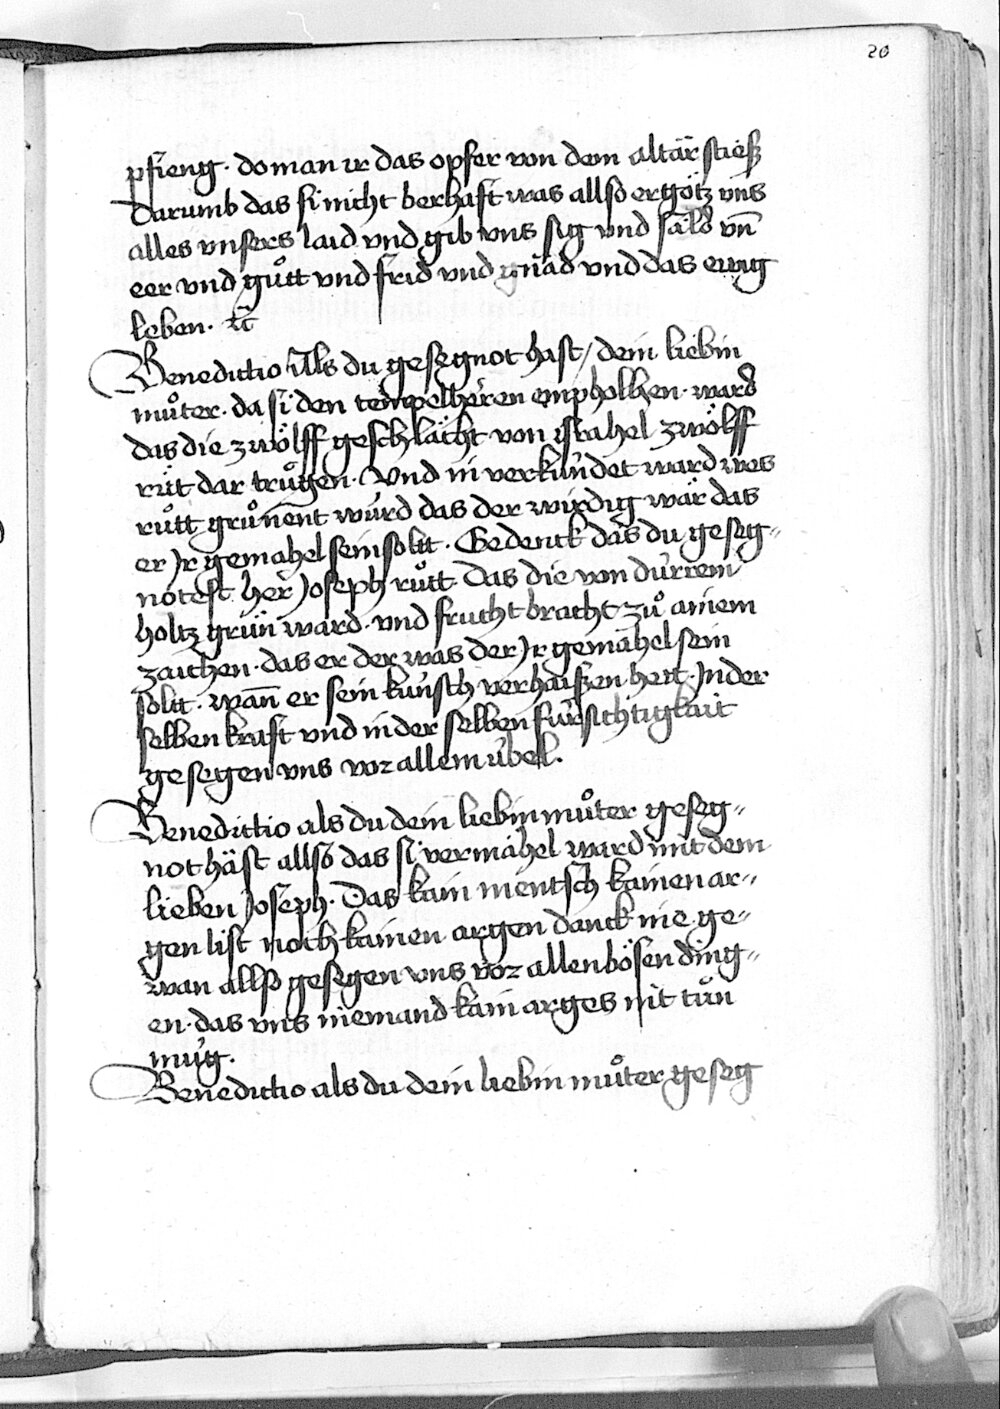 20
pfieng · do man ir das opfer von dem altar stieß
Darumb das si nicht berhaft was allso ergötz vns
alles vnsers laid vnd gib vns sig vnd säld vn̄
eer vnd gůtt vnd frid vnd gnad vnd das ewig
leben · ꝛc̄
Benedictio Als du gesegnot hast / dein liebin
můter · da si den tempelherren empholhen · ward
das die zwölff geschlächt von israhel zwölff
růt dar trůgen · Vnd in verkündet ward wes
růtt grůnent wurd das der wirdig wär das
er Jr gemahel sein soltt · Gedenck das du geseg-
notest her Joseph růtt Das die von dürrem
holtz grün ward · vnd frucht bracht zů ainem
zaichen · das er der was der Jr gemahel sein
soltt · wan̄ er sein künsch verhaissen hett · In der
selben kraft vnd in der selben fürsichtigkait
gesegen vns vor allem übel ·
Benedictio als du dein liebin můter geseg-
not häst allso das si vermahel ward mit dem
lieben Joseph · Das kain mentsch kainen ar-
gen list noch kainen argen danck nie ge-
wan allso gesegen vns vor allen bösen ding-
en · das vns niemand kain arges nit tůn
müg ·
Benedictio als du dein liebin můter geseg